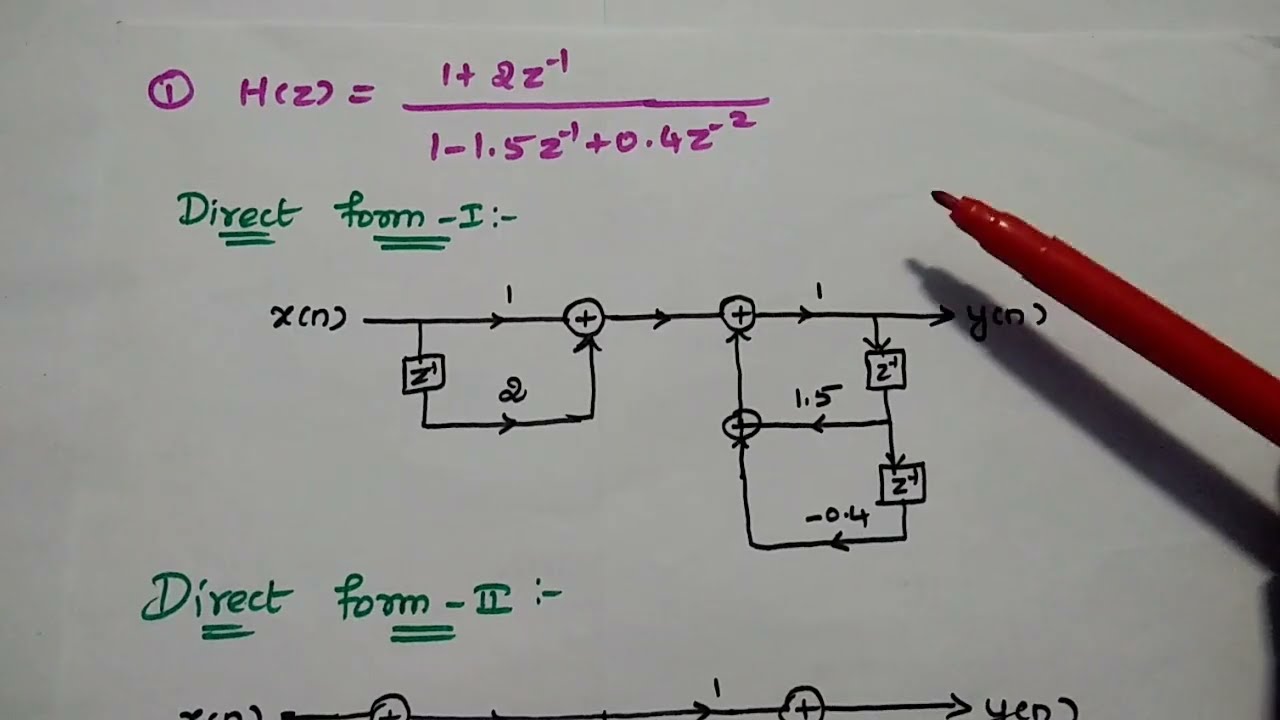 ① H(z) = 1 + 2z⁻¹ / 1 - 1.5z⁻¹ + 0.4z⁻²
Direct form - I :-
x(n) 1 + + 1 y(n)
z⁻¹ 2 z⁻¹
+ 1.5
z⁻¹
-0.4
Direct form - II :-
x(n) + 1 + y(n)